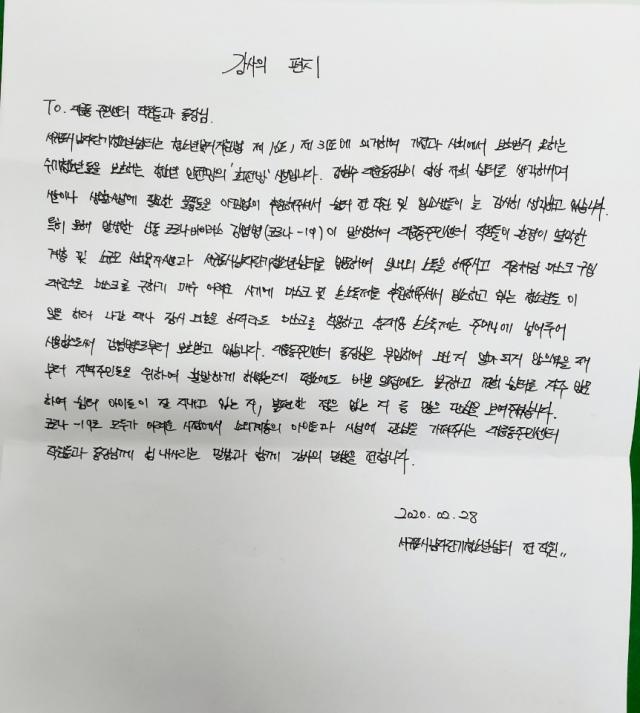 감사의 편지
To. 대륜동 주민센터 직원들과 동장님.
서귀포시남자단기청소년쉼터는 청소년복지지원법 제 16조, 제 31조에 의거하여 가정과 사회에서 보호받지 못하는
위기청소년들을 보호하는 청소년 안전망의 '최전방' 시설입니다. 대륜동장님이 항상 저희 쉼터를 생각하시며
쌀이나 생활시설에 필요한 물품들을 아낌없이 후원해주셔서 쉼터 전 직원 및 입소생들이 늘 감사히 생각하고 있습니다.
특히 올해 발생한 신종 코로나바이러스 감염병(코로나-19)이 발생하여 대륜동주민센터 직원들이 환경이 열악한
계층 및 소규모 사회복지시설과 서귀포시남자단기청소년쉼터를 방문하여 실내외 소독을 해주시고 저희처럼 마스크 구입
마스크를 구하기 매우 어려운 시기에 마스크 및 손소독제를 후원해주셔서 입소하고 있는 청소년들이
일을 하러 나갈 때나 잠시 외출을 하더라도 마스크를 착용하고 휴대용 손소독제는 주머니에 넣어두어
사용함으로써 감염병으로부터 보호받고 있습니다. 대륜동주민센터 동장님은 부임하여 오신 지 얼마 되지 않으셨을 때
부터 지역주민들을 위하여 활발하게 하셨는데 평소에도 바쁜 일정에도 불구하고 저희 쉼터를 자주 방문
하여 쉼터 아이들이 잘 지내고 있는 지, 불편한 점은 없는 지 등 많은 관심을 보여주셨습니다.
코로나-19로 모두가 어려운 시점에서 소외계층의 아이들과 시설에 관심을 가져주시는 대륜동주민센터
직원들과 동장님께 힘 내시라는 말씀과 함께 감사의 말씀을 전합니다.
2020. 02. 28
서귀포시남자단기청소년쉼터 전 직원..